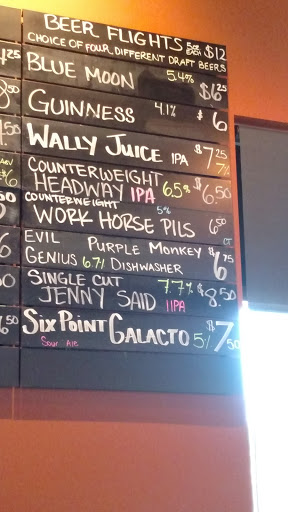 BEER FLIGHTS 5oz EACH $12
CHOICE OF FOUR DIFFERENT DRAFT BEERS
BLUE MOON 5.4% $6.25
GUINNESS 4.1% $6
WALLY JUICE IPA $7.25 7%
COUNTERWEIGHT
HEADWAY IPA 6.5% $6.50
COUNTERWEIGHT 5%
WORK HORSE PILS 6.50
EVIL PURPLE MONKEY CT
GENIUS 6.7% DISHWASHER $6.75
SINGLE CUT 7.7%
JENNY SAID IIPA $8.50
SIXPOINT GALACTO 5% $7.50
Sour Ale